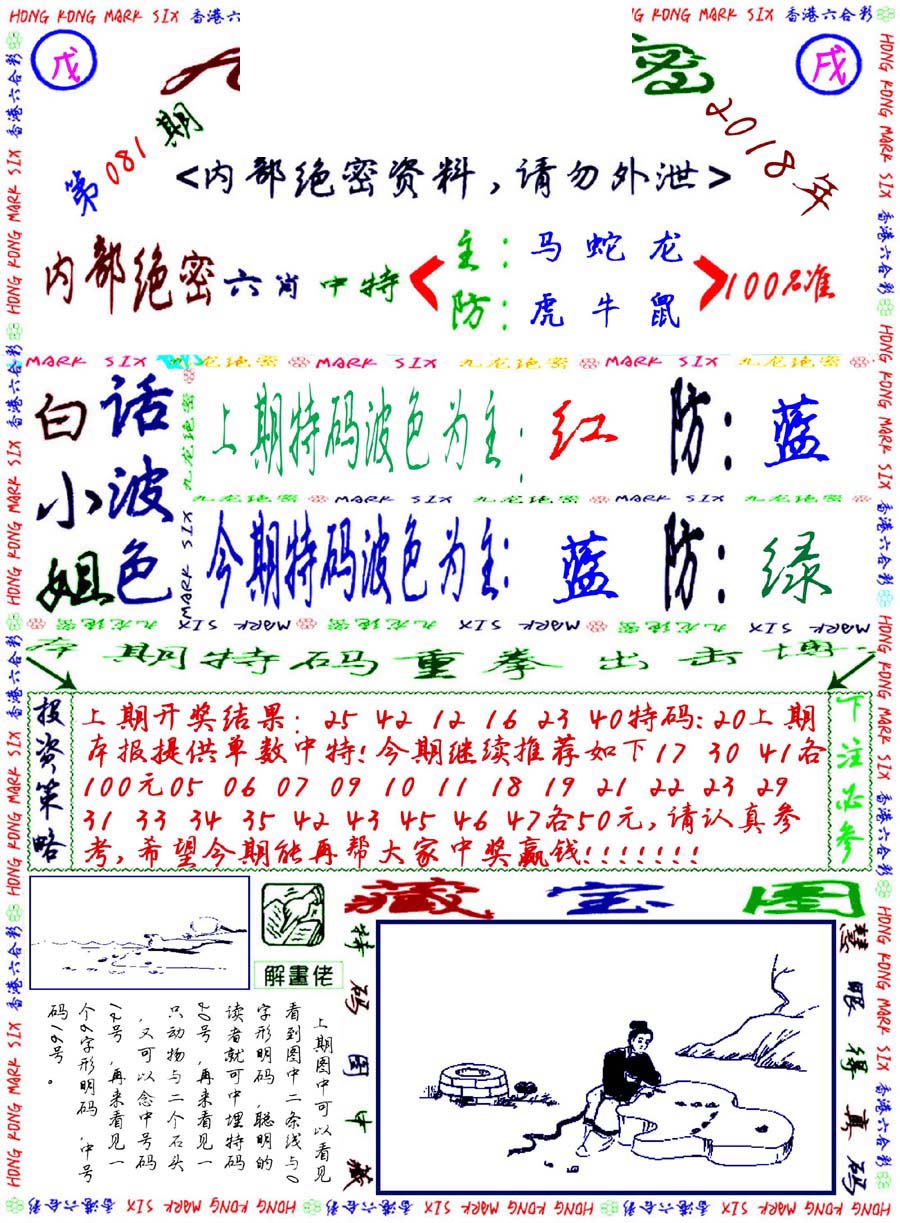 HONG KONG MARK SIX 香港六合彩
戊
密
戌
第081期
2018年
<内部绝密资料,请勿外泄>
内部绝密六肖中特
主:马蛇龙
防:虎牛鼠
100%准
MARK SIX 九龙绝密 MARK SIX 九龙绝密 MARK SIX 九龙绝密
白小姐
话波色
上期特码波色为主:红 防:蓝
九龙绝密 MARK SIX 九龙绝密 MARK SIX 九龙绝密
今期特码波色为主:蓝 防:绿
九龙绝密 MARK SIX 九龙绝密 MARK SIX 九龙绝密 MARK SIX
本期特码重拳出击博
投资策略
上期开奖结果: 25 42 12 16 23 40特码:20上期
本报提供单数中特!今期继续推荐如下17 30 41各
100元05 06 07 09 10 11 18 19 21 22 23 29
31 33 34 35 42 43 45 46 47各50元,请认真参
考,希望今期能再帮大家中奖赢钱!!!!!!!
下注必参
藏宝图
解畫佬
上期图中可以看见
看到图中二条线与0
字形明码,聪明的
读者就可中埋特码
20号,再来看见一
只动物与二个石头
,又可以念中号码
12号,再来看见一
个9字形明码,中号
码19号。
特码图中藏
慧眼得真码
HONG KONG MARK SIX 香港六合彩